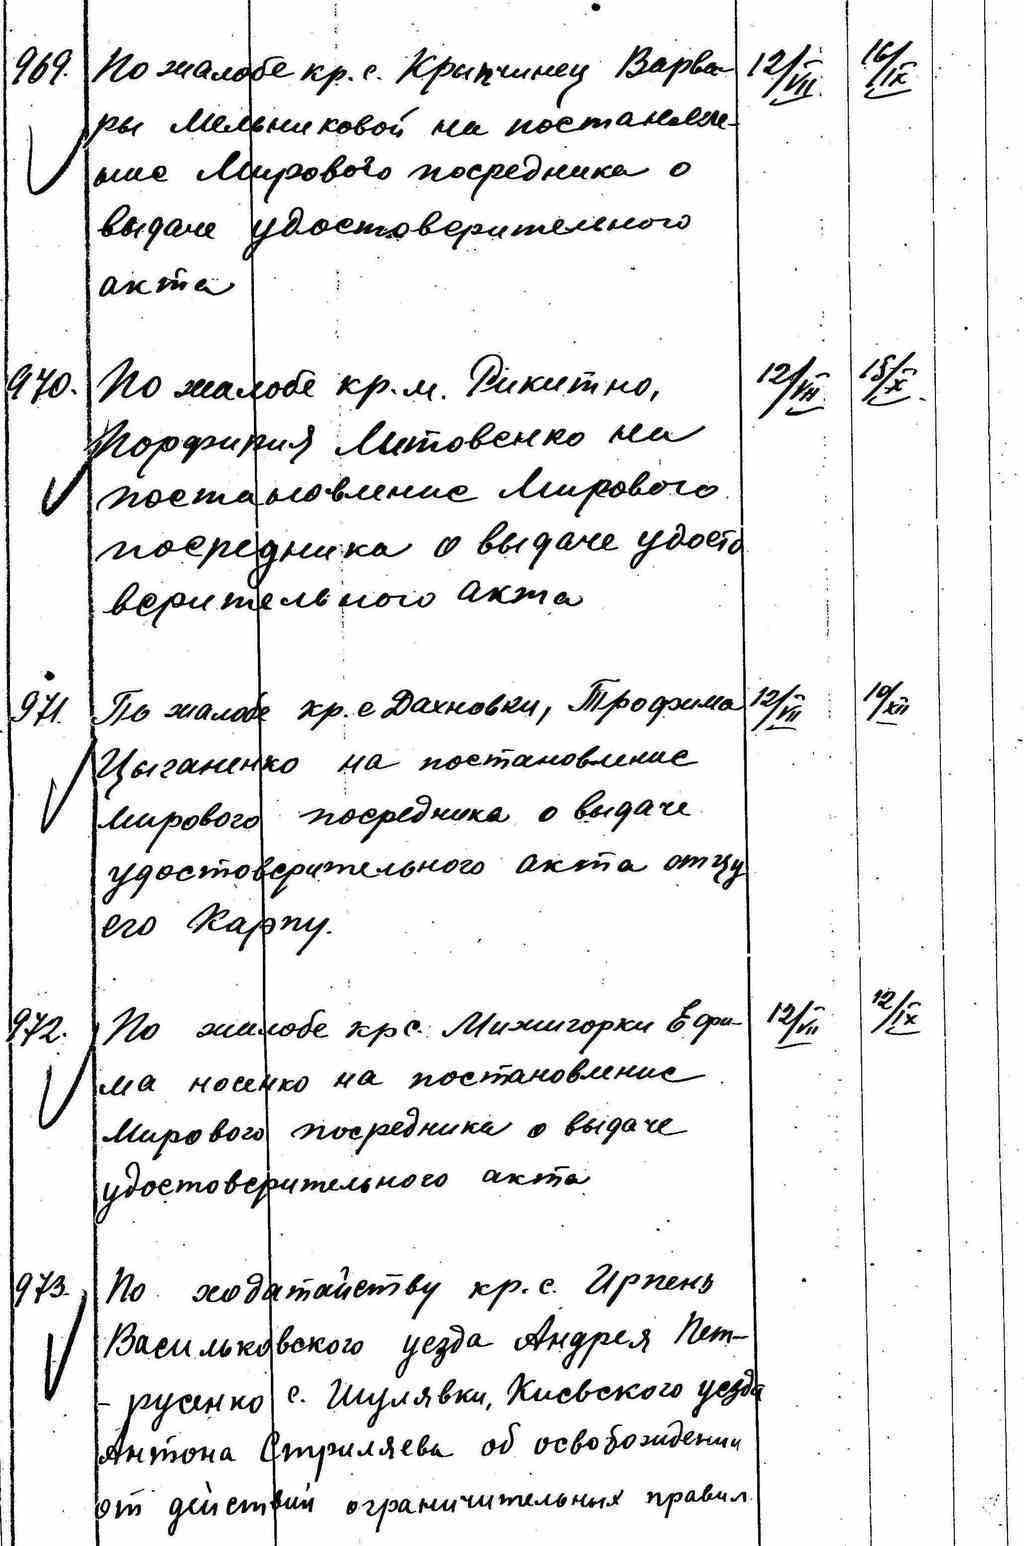 969. По жалобе кр. с. Крыпчинец Варва- 12/VII 16/IX
ры Мельниковой на постановле-
ние Мирового посредника о
выдаче удостоверительного
акта
970. По жалобе кр. м. Рикитно, 12/VII 15/X
Порфирия Литовенко на
постановление Мирового
посредника о выдаче удосто
верительного акта
971. По жалобе кр. с Дахновки, Трофима 12/VII 10/XII
Цыганенко на постановление
Мирового посредника о выдаче
удостоверительного акта отцу
его Карпу.
972. По жалобе кр с. Мижигорки Ефи- 12/VII 12/IX
ма Носенко на постановление
Мирового посредника о выдаче
удостоверительного акта
973. По ходатайству кр. с. Ирпень
Васильковского уезда Андрея Пет-
- русенко с. Шулявки, Киевского уезда
Антона Стриляева об освобождении
от действий ограничительных правил